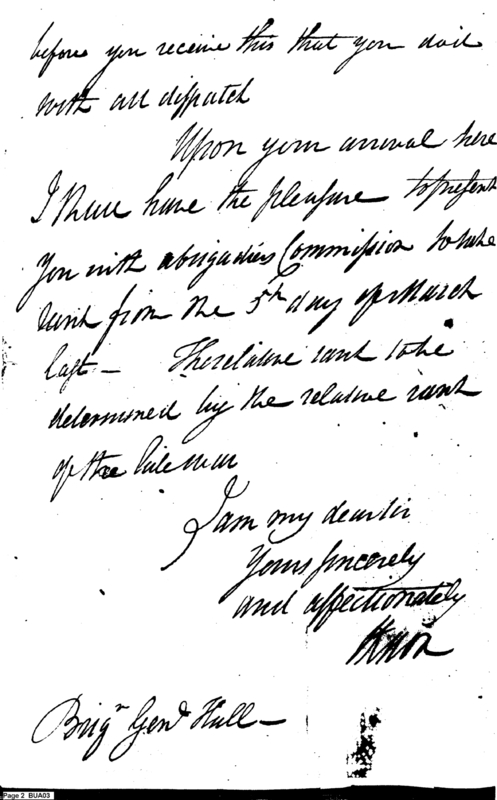 before you receive this that you sail
with all dispatch
Upon your arrival here
I shall have the pleasure to present
you with a brigadiers Commission to take
rank from the 5th day of March
last — The relative rank to be
determined by the relative rank
of the late war
I am my dear sir
Yours sincerely
and affectionately
HKnox
Brigr Genl Hull —
Page 2 BUA03